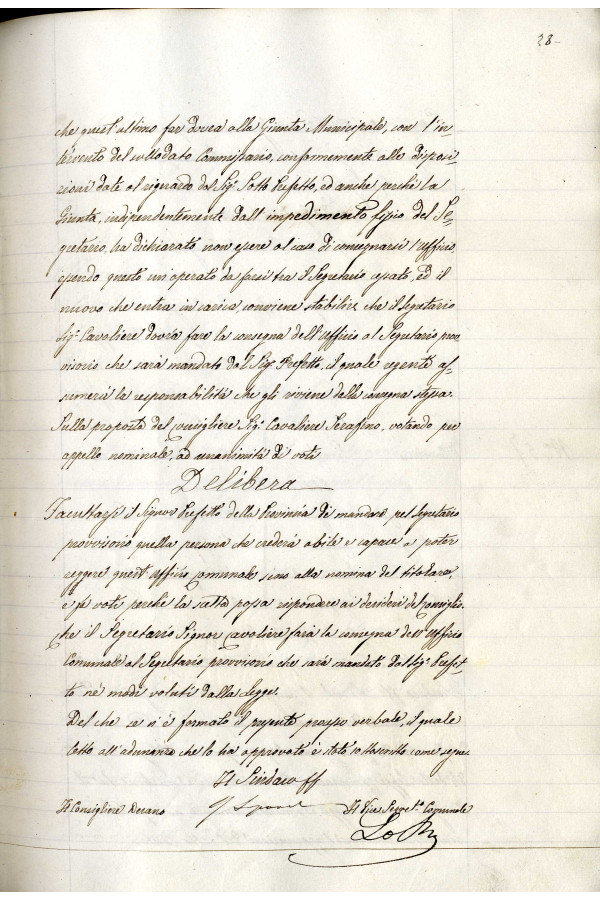 28
che quest'ultimo far dovea alla Giunta Municipale, con l'in
tervento del sullodato Commissario, conformemente alle disposi
zioni date al riguardo dal Sig. Sotto Prefetto, ed anche perchè la
Giunta, indipendentemente dall'impedimento fisico del Se=
gretario, ha dichiarato non essere al caso di consegnarsi l'uffizio,
essendo questo un'operato da farsi tra il Segretario cessato, ed il
nuovo che entra in carica conviene stabilire che il Segretario
Sig. Cavaliere dovrà fare la consegna dell'uffizio al Segretario prov
visorio che sarà mandato dal Sig. Prefetto, il quale reggente as=
sumerà la responsabilità che gli riviene dalla consegna stessa.
Sulla proposta del consigliere Sig. Cavaliere Serafino, votando per
appello nominale, ad unanimità di voti
Delibera
Facultarsi il Signor Prefetto della Provincia di mandare pel Segretario
provvisorio quella persona che crederà abile e capace a poter
reggere quest'uffizio comunale sino alla nomina del titolare,
e fa voti perchè la scelta possa rispondere ai desideri del Consiglio.
Che il Segretario Signor Cavaliere farà la consegna dell'uffizio
Comunale al Segretario provvisorio che sarà mandato dal Sig. Prefet-
to nè modi voluti dalla legge.
Del che se n'è formato il presente processo verbale, il quale
letto all'adunanza che lo ha approvato è stato sottoscritto come segue.
Il Sindaco ff
Il Consigliere Decano
Il Vice Segret.o Comunale